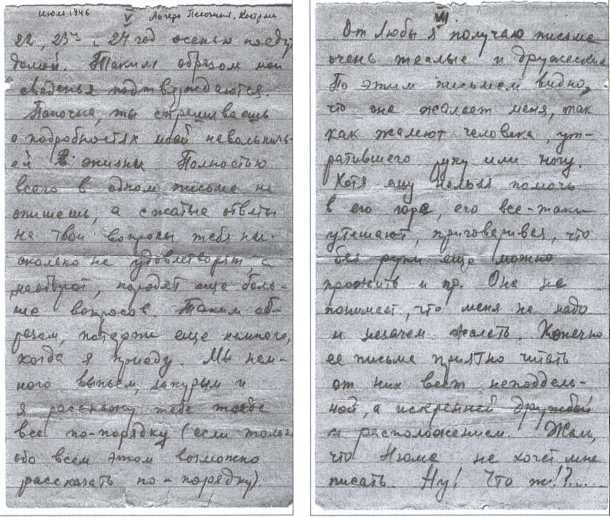 июль 1946 V Лагерь Печоткин, Кострома
22, 23 и 24 год осенью поедут
домой. Таким образом мои
сведенья подтверждаются.
Папочка, ты спрашиваешь
о подробностях моей невольничь-
ей жизни. Полностью
всего в одном письме не
опишешь, а сжатые ответы
на твои вопросы тебя ни-
сколько не удовлетворят, а
наоборот, породят еще боль-
ше вопросов. Таким об-
разом, потерпи еще немного,
когда я приеду. Мы нем-
ного выпьем, закурим и
я расскажу тебе тогда
все по-порядку (если только
обо всем этом возможно
рассказать по-порядку).
VII
От Любы я получаю письма
очень теплые и дружеские.
По этим письмам видно,
что она жалеет меня, так
как жалеют человека, ут-
ратившего руку или ногу.
Хотя ему нельзя помочь
в его горе, его все-таки
утешают, приговаривая, что
без руки еще можно
прожить и пр. Она не
понимает, что меня не надо
и незачем жалеть. Конечно
ее письма приятно читать
от них веет неподдель-
ной, а искренней дружбой
и расположением. Жаль,
что Нюма не хочет мне
писать. Ну! Что ж!?...